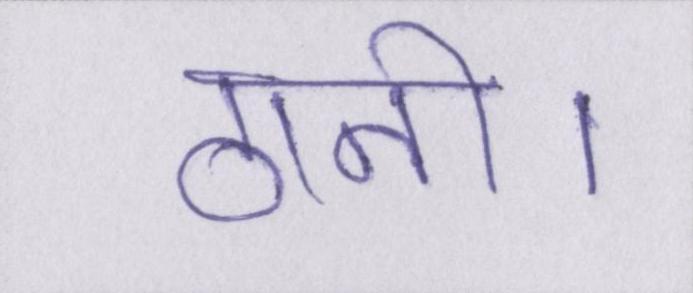 ठानी।